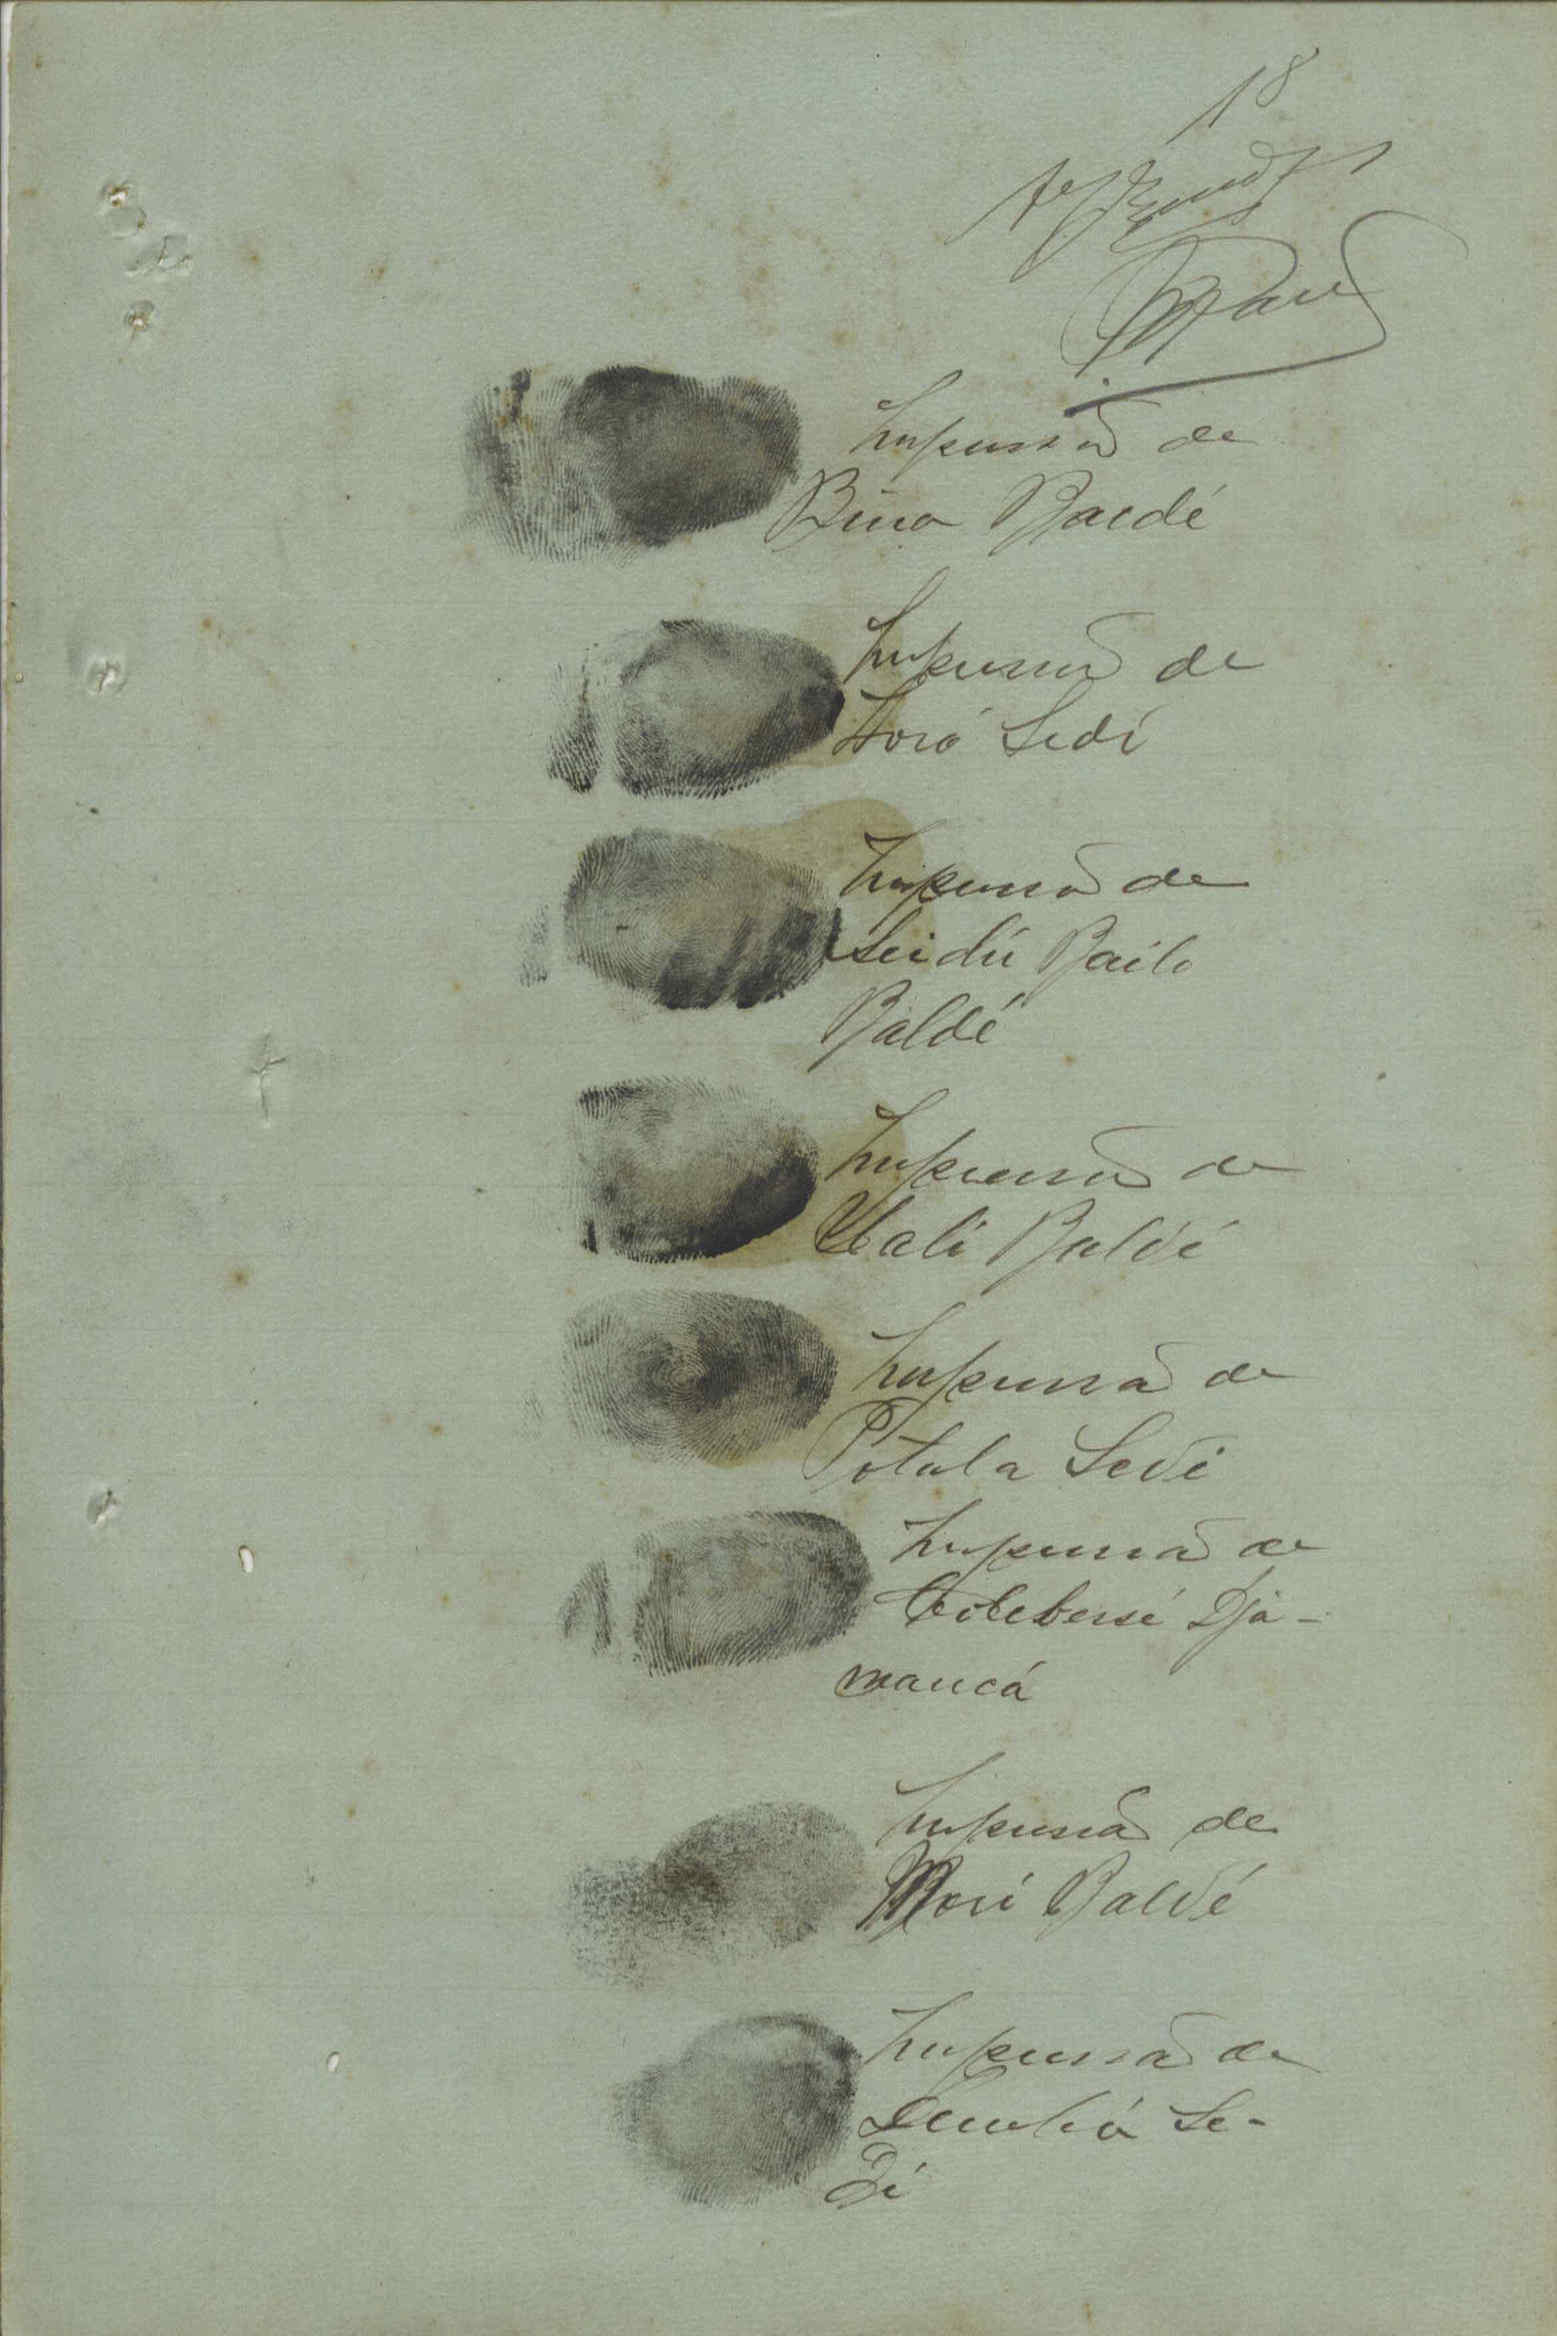 18
Impressão de
Bino Baldé
Impressão de
Soró Sedi
Impressão de
Seidú Bailo
Baldé
Impressão de
Uali Baldé
Impressão de
Potula Sedi
Impressão de
Djá-
mancá
Impressão de
Mori Baldé
Impressão de
Se-
di